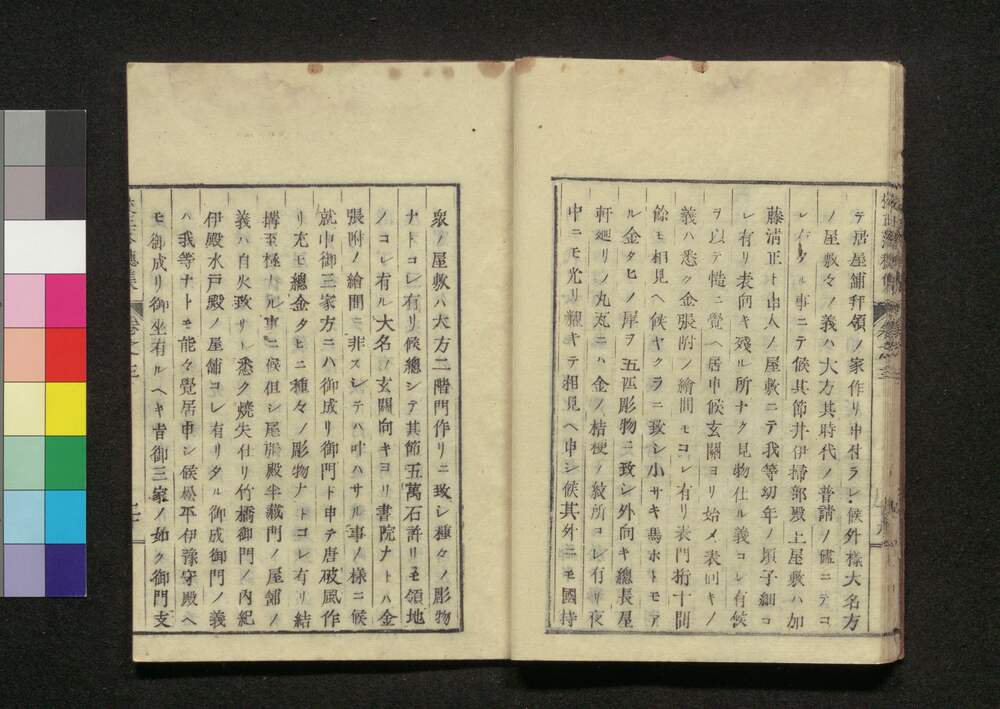 テ居屋舖拜領ノ家作リ申付ラレ候外樣大名方
ノ屋敷々ノ義ハ大方其時代ノ普請ノ儘ニテコ
レ有タル事ニテ候其節井伊掃部殿上屋敷ハ加
藤清正ト申人ノ屋敷ニテ我等幼年ノ頃子細コ
レ有リ表向キ殘ル所ナク見物仕ル義コレ有候
ヲ以テ慥ニ覺ヘ居申候玄關ヨリ始メ表向キノ
義ハ悉ク金張附ノ繪間モコレ有リ表門桁十間
餘モ相見ヘ候ヤクラニ致シ小サキ馬ホトモア
ル金タヒノ犀ヲ五匹彫物ニ致シ外向キ總長屋
軒廻リノ丸瓦ニハ金ノ桔梗ノ紋所コレ有リ夜
中ニモ光リ耀キテ相見ヘ申シ候其外ニモ國持
衆ノ屋敷ハ大方二階門作リニ致シ種々ノ彫物
ナトコレ有リ候總シテ其節五萬石許リモ領地
ノコレ有ル大名ノ玄關向キヨリ書院ナトハ金
張附ノ繪間ニ非スシテハ叶ハサル事ノ樣ニ候
就中御三家方ニハ御成リ御門ト申テ唐破風作
リ尤モ總金タヒニ種々ノ彫物ナトコレ有リ結
搆至極ナル事ニ候但シ尾張殿半藏門ノ屋舖ノ
義ハ自火致サレ悉ク燒失仕リ竹橋御門ノ內紀
伊殿水戶殿ノ屋舖コレ有リタル御成御門ノ義
ハ我等ナトモ能々覺居申シ候松平伊豫守殿ヘ
モ御成リ御坐有ルヘキ旨御三家ノ如ク御門支
卷之三